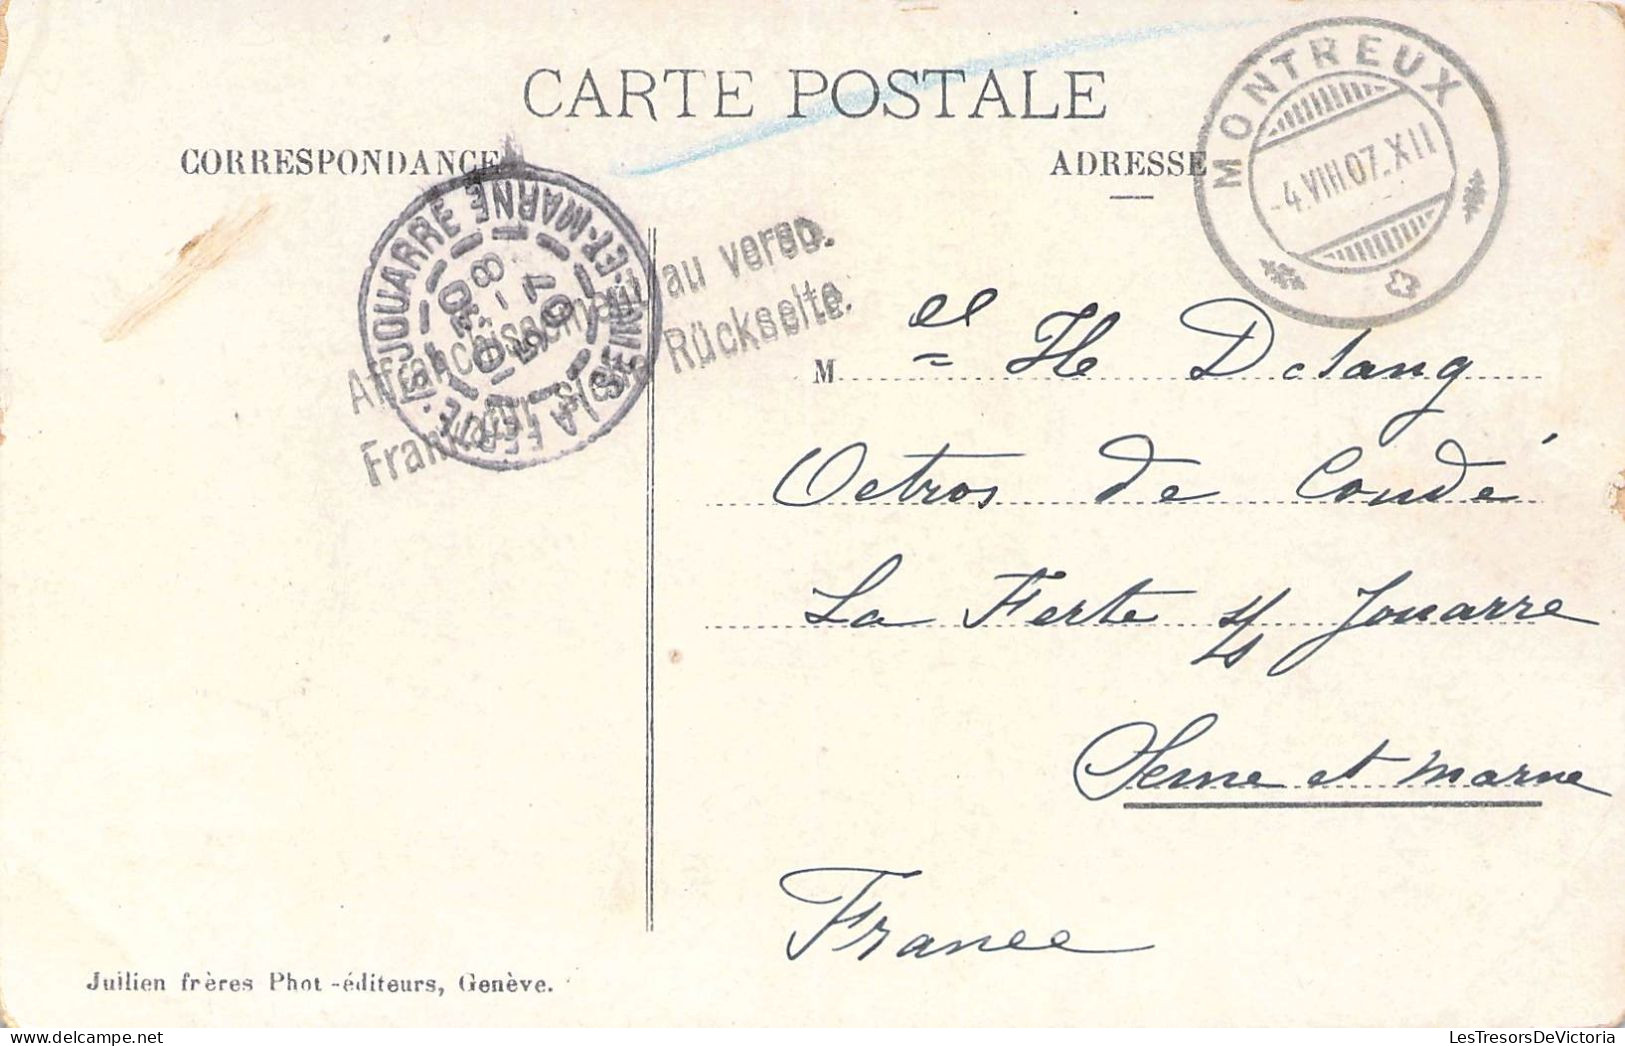 CARTE POSTALE
CORRESPONDANCE
ADRESSE
MONTREUX
-4.VIII.07.XII
LA FERTÉ-S-JOUARRE
(SEINE-ET-MARNE)
Affranchissement au verso.
Frankatur siehe Rückseite.
M elle H Delang
Octros de Condé
La Ferte s/s Jouarre
Seine et Marne
France
Jullien frères Phot.-éditeurs, Genève.
LesTresorsDeVictoria